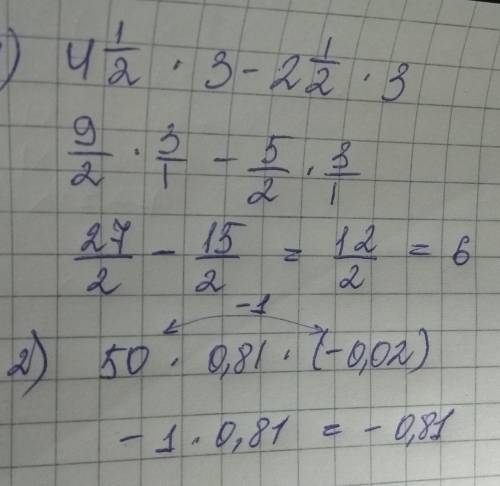 1) 4 1/2 · 3 - 2 1/2 · 3
9/2 · 3/1 - 5/2 · 3/1
27/2 - 15/2 = 12/2 = 6
-1
2) 50 · 0,81 · (-0,02)
-1 · 0,81 = -0,81